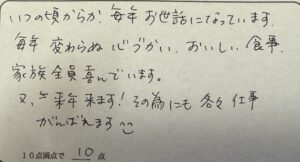 いつの頃からか、毎年お世話になっています。
毎年 変わらぬ 心づかい、おいしい 食事、
家族全員喜んでいます。
又、来年来ます！その為にも 各々 仕事
がんばれます
10点満点で 10 点